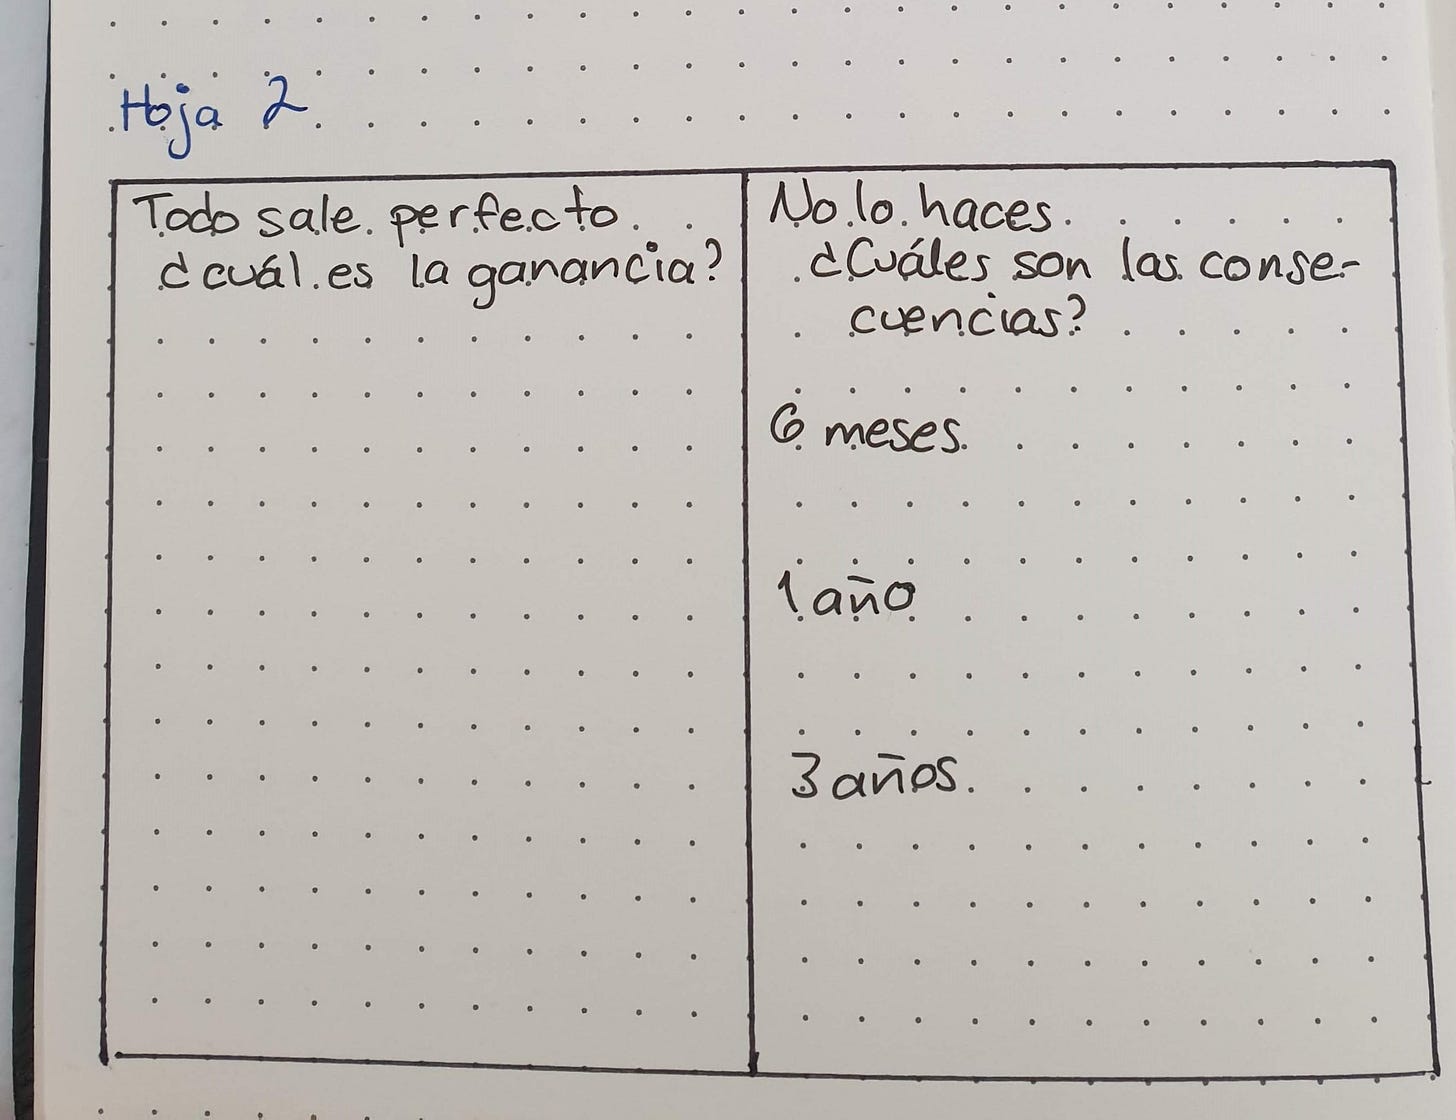 Hoja 2
Todo sale perfecto.
¿cuál es la ganancia?
No lo haces.
¿Cuáles son las conse-
cuencias?
6 meses.
1 año
3 años.